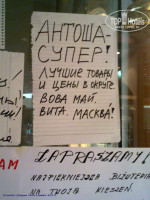 TopHotels
АНТОША-
СУПЕР!
ЛУЧШИЕ ТОВАРЫ
И ЦЕНЫ В ОКРУГЕ.
ВОВА МАЙ.
ВИТА. МАСКВА!
ZAPRASZAMY!
NAJPIĘKNIEJSZA BIŻUTERIA
NA TWOJĄ KIESZEŃ.